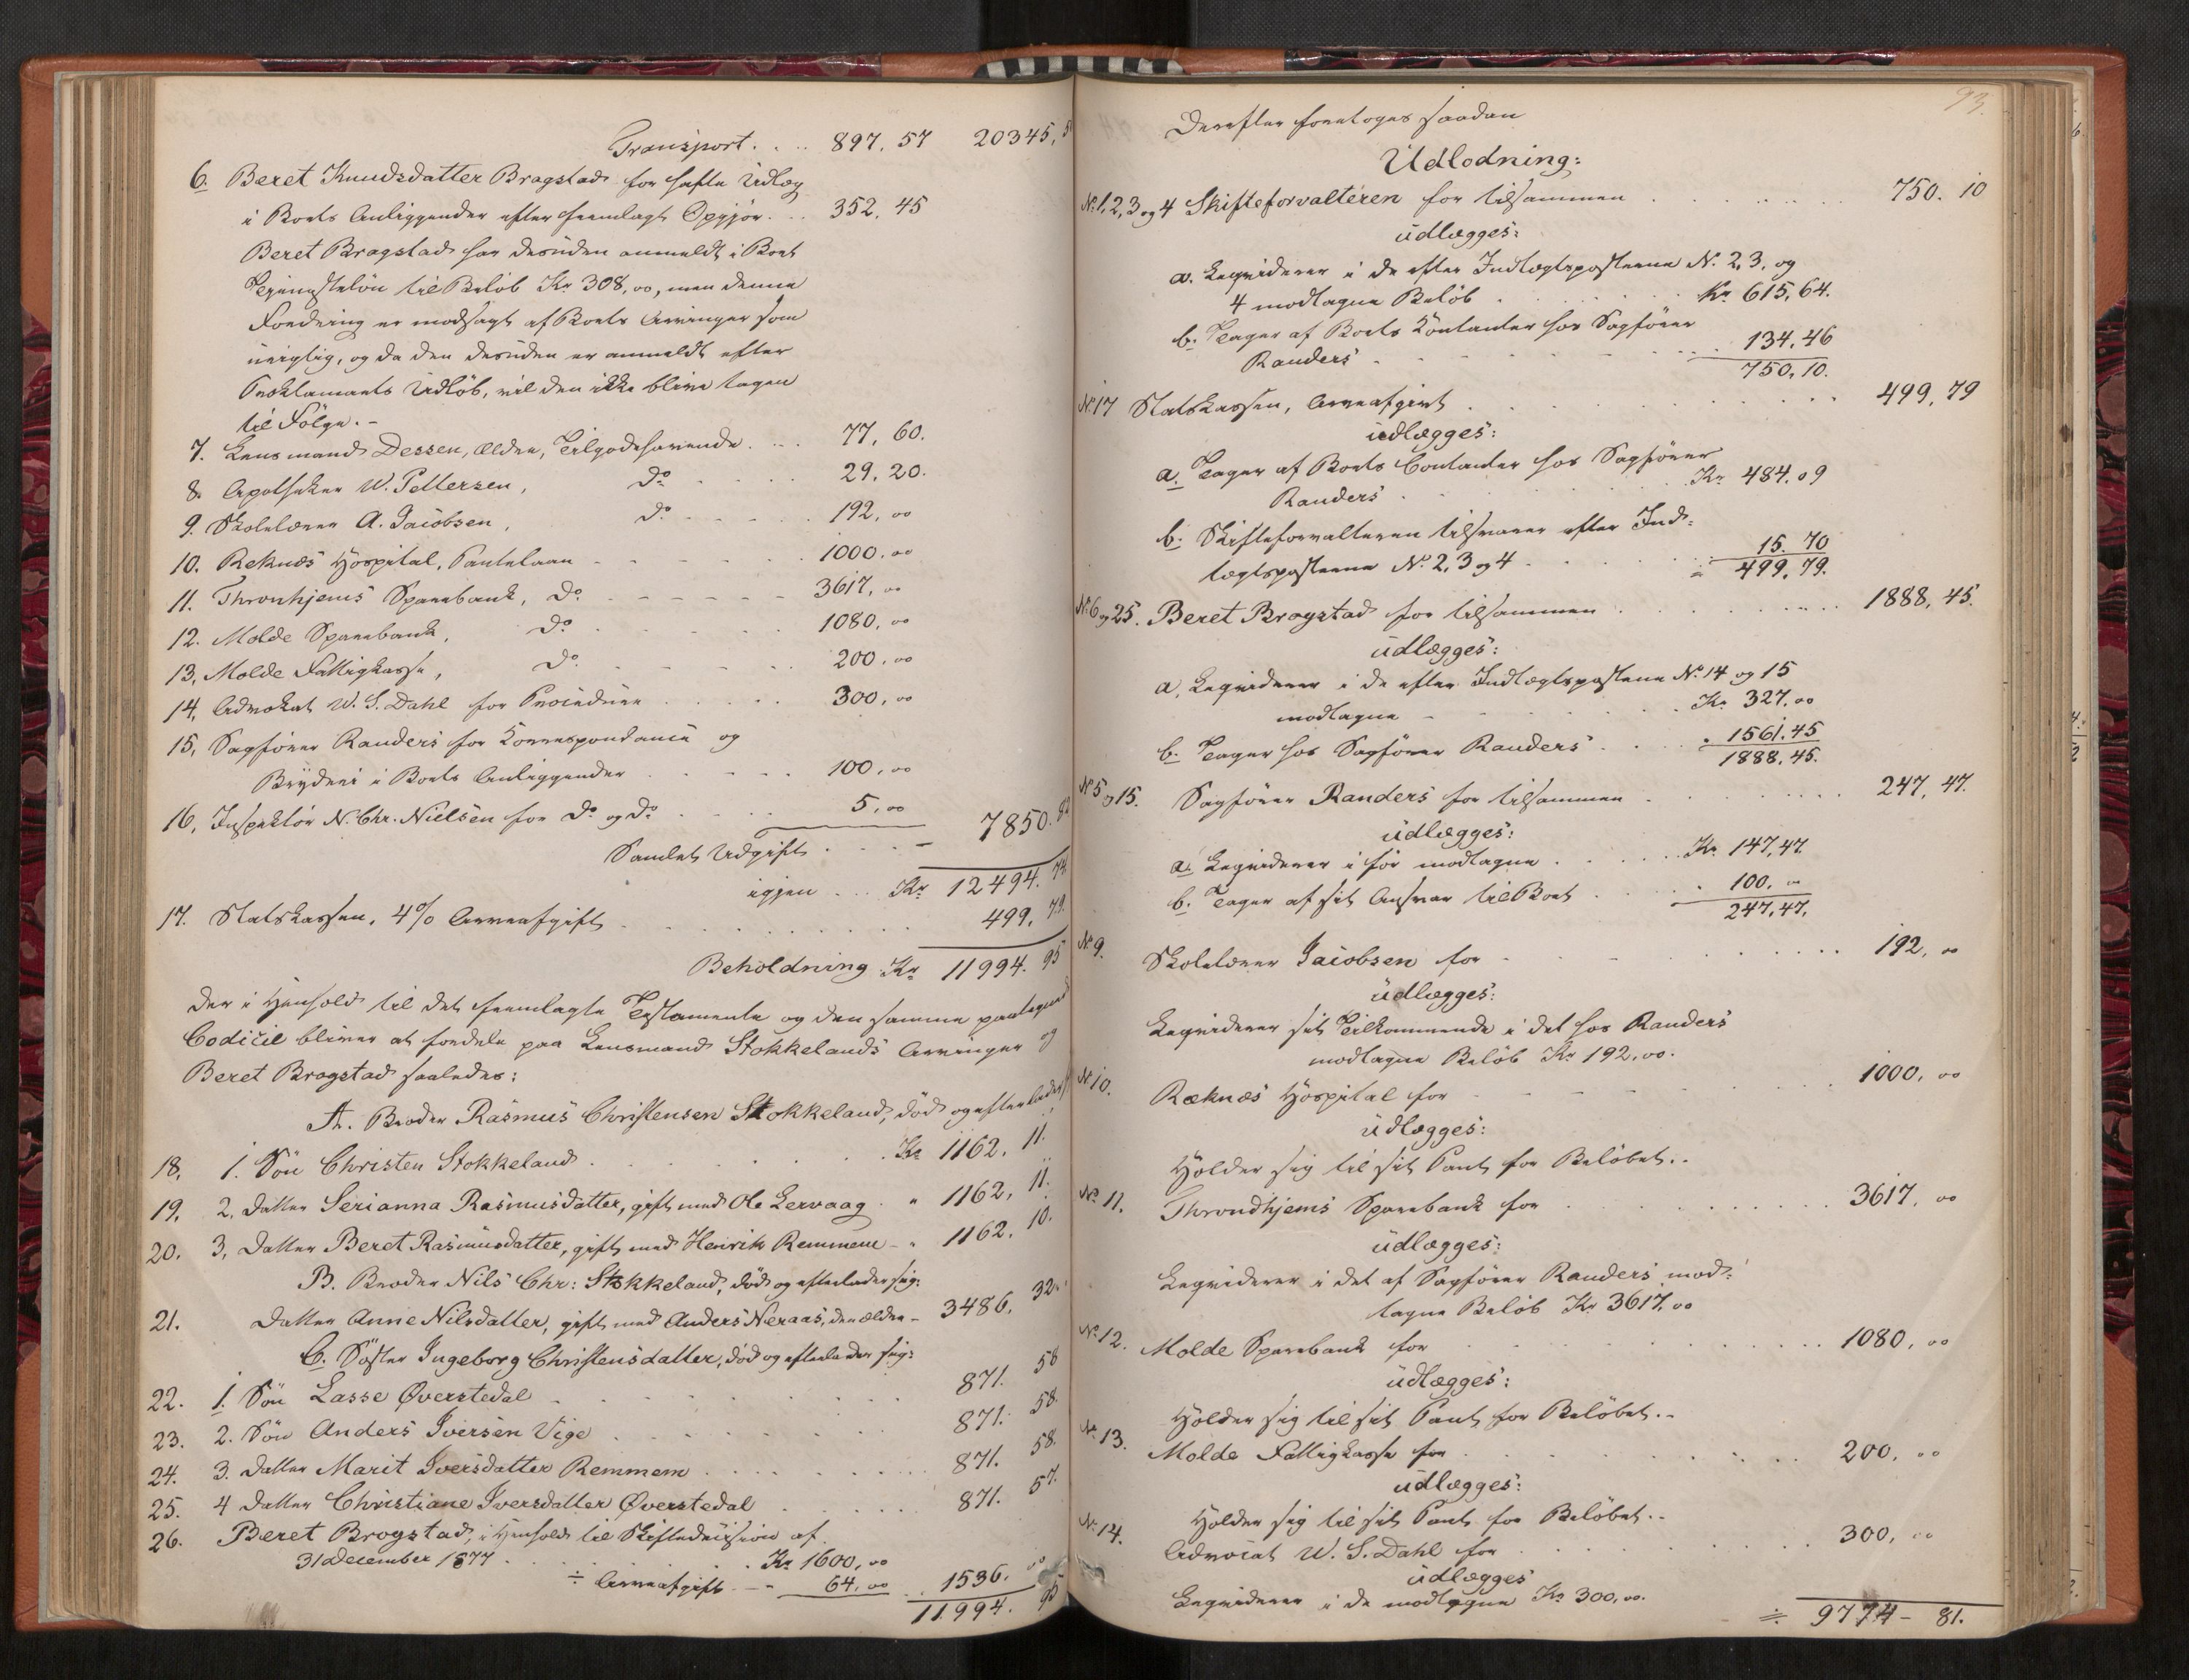 Transport. . . 897. 57 20345, 5
6. Beret Knudsdatter Bragstad for hafte Udlæg
i Boets Anliggender efter fremlagt Opgjør. . . 352. 45
Beret Bragstad har desuden anmeldt i Boet
Tjenesteløn til Beløb Kr 308,00, men denne
Fordring er modsagt af Boets Arvinger som
urigtig, og da den desuden er anmeldt efter
Proklamaets Udløb, vil den ikke blive tagen
til Følge. -
7. Lensmand Dessen, ældre, Tilgodehavende. . . 77. 60.
8. Apotheker W. Pettersen, Do . . . 29. 20.
9. Skolelærer A. Jacobsen, Do . . . 192, 00
10. Reknæs Hospital, Pantelaan . . . 1000. 00
11. Thronhjems Sparebank, Do . . . 3617, 00
12. Molde Sparebank, Do . . . 1080, 00
13, Molde Fattigkasse, Do . . . 200. 00
14, Advokat W. S. Dahl for Procedure . . . 300, 00
15, Sagfører Randers for Korrespondance og
Bryderi i Boets Anliggender . . . 100, 00
16, Inspektør N. Chr. Nielsen for Do og Do . . . 5, 00 7850. 82
Samlet Udgift . . . -
igjen . . . Kr 12494. 74
17. Statskassen, 4% Arveafgift . . . 499. 79.
Beholdning Kr 11994. 95
der i Henhold til det fremlagte Testamente og den samme paategnede
Codicil bliver at fordele paa Lensmand Stokkelands Arvinger og
Beret Bragstad saaledes:
A. Broder Rasmus Christensen Stokkeland, død og efterlader
18. 1. Søn Christen Stokkeland . . . Kr 1162. 11.
19. 2. Datter Serianna Rasmusdatter, gift med Ole Lervaag . " 1162, 11.
20. 3, Datter Beret Rasmusdatter, gift med Henrik Remmem - " 1162. 10.
B. Broder Nils Chr: Stokkeland, død og efterlader sig:
21. Datter Anne Nilsdatter, gift med Anders Neraas, den ældre - 3486. 32.
C. Søster Ingeborg Christensdatter, død og efterlader sig:
22. 1. Søn Lasse Øverstedal . . . 871. 58
23. 2. Søn Anders Iversen Vige . . . 871. 58.
24. 3. Datter Marit Iversdatter Remmem . . . 871. 58.
25. 4 Datter Christiane Iversdatter Øverstedal . . . 871. 57.
26. Beret Brogstad, i Henhold til Skiftedecision af
31 December 1877 . . . Kr 1600, 00
÷ Arveafgift - - 64, 00 . . 1536. 00
11994. 95
93.
Derefter foretoges saadan
Udlodning:
No 1, 2, 3 og 4 Skifteforvalteren for tilsammen . . . 750. 10
udlægges:
a. Leqviderer i de efter Indtægtsposterne No. 2, 3, og
4 modtagne Beløb . . . Kr 615, 64.
b. Tager af Boets Kontanter hos Sagfører
Randers . . . 134. 46
750, 10.
No 17 Statskassen, Arveafgivt . . . 499, 79
udlægges:
a. Tager af Boets Contanter hos Sagfører
Randers . . . Kr 484. 09
b. Skifteforvalteren tilsvarer efter Ind-
tægtsposterne No 2, 3 og 4 . . . 15. 70
= 499, 79.
No 6 og 25. Beret Brogstad for tilsammen . . . 1888, 45.
udlægges:
a, Leqviderer i de efter Indtægtsposterne No 14 og 15
modtagne . . . Kr 327. 00
b. Tager hos Sagfører Randers . . . 1561. 45
1888. 45.
No 5 og 15. Sagfører Randers for tilsammen . . . 247, 47.
udlægges:
a. Leqviderer i før modtagne . . . Kr 147, 47.
b. Tager af sit Ansvar til Boet . . . 100. 00
247, 47.
No 9. Skolelærer Jacobsen for . . . 192, 00
udlægges:
Leqviderer sit Tilkommende i det hos Randers
modtagne Beløb Kr 192, 00.
No 10. Reknæs Hospital for . . . 1000, 00
udlægges:
Holder sig til sit Pant for Beløbet. -
No 11. Throndhjems Sparebank for . . . 3617, 00
udlægges:
Leqviderer i det af Sagfører Randers mod-
tagne Beløb Kr 3617. 00
No 12. Molde Sparebank for . . . 1080, 00
udlægges:
Holder sig til sit Pant for Beløbet. -
No 13. Molde Fattigkasse for . . . 200, 00
udlægges:
Holder sig til sit Pant for Beløbet. -
No 14. Advocat W. S. Dahl for . . . 300, 00
udlægges
Leqviderer i de modtagne Kr 300, 00.
÷ 9774 - 81.